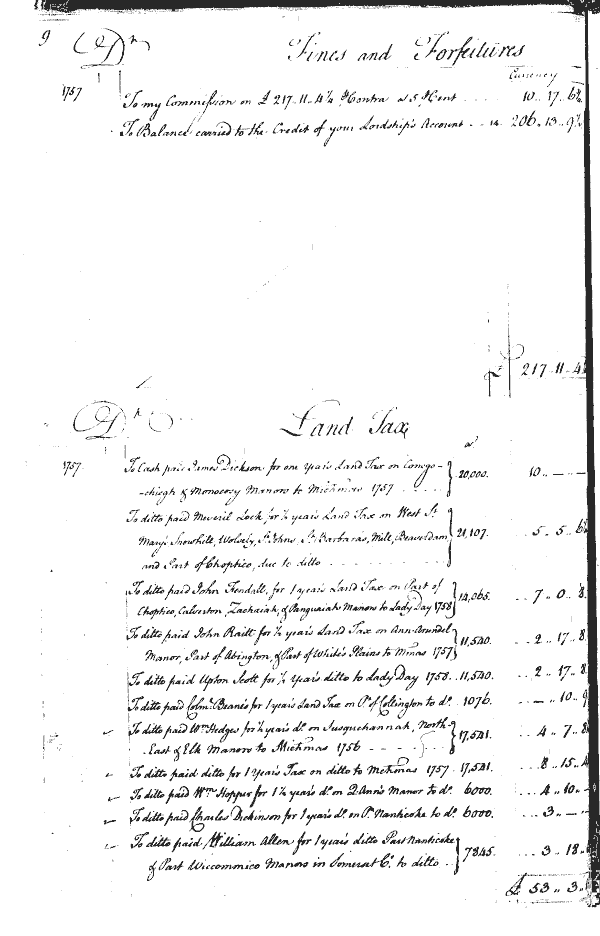 9 Dr Fines and Forfeitures
Currency
1757 To my Commission on £ 217..11..4¼ ⅌ Contra a 5 ⅌ Cent .... 10..17..6½
To Balance carried to the Credit of your Lordship's Account .. 206..13..9¾
£ 217..11..4
Dr Land Tax
as
1757 To Cash paid James Dickson for one Years Land Tax on Conogo-
-chiegh & Monococy Manors to Michmas 1757 ..... 20,000. 10..—..—
To ditto paid Meveril Lock for ½ years Land Tax on West St
Marys Snowhill, Wolsely, St Johns, St Barbaras, Mill, Beaverdam 21,107. ..5..5..6½
and Part of Choptico, due to ditto
To ditto paid John Tendall, for 1 years Land Tax on Part of
Choptico, Calverton, Zachaiah, & Panguaiah Manors to Lady Day 1758 14,065. ..7..0..8
To ditto paid John Raitt for ½ years Land Tax on Ann Arundel
Manor, Part of Abington, & Part of White's Plains to Mmas 1757 11,540. ..2..17..8
To ditto paid Upton Scott for ½ Years ditto to Lady Day 1758.. 11,540. ..2..17..8
To ditto paid Colmo. Beanes for 1 years Land Tax on Pt. of Collington to do. 1076. ..—..10..9
To ditto paid Wm Hedges for ½ years do. on Susquehannah, North-
East & Elk Manors to Michmas 1756 17,541. ..4..7..8
To ditto paid ditto for 1 Years Tax on ditto to Mchmas 1757. 17,541. ..8..15..4
To ditto paid Wm. Hopper for 1½ years do. on Q. Ann's Manor to do. 6000. ..4..10..—
To ditto paid Charles Dickinson for 1 years do. on Pt. Nanticoke to do. 6000. ...3..—..—
To ditto paid William Allen for 1 years ditto Part Nanticoke
& Part Wiccomonico Manors in Somerset Co. to ditto .. 7845. ...3..18..
£ 53..3..